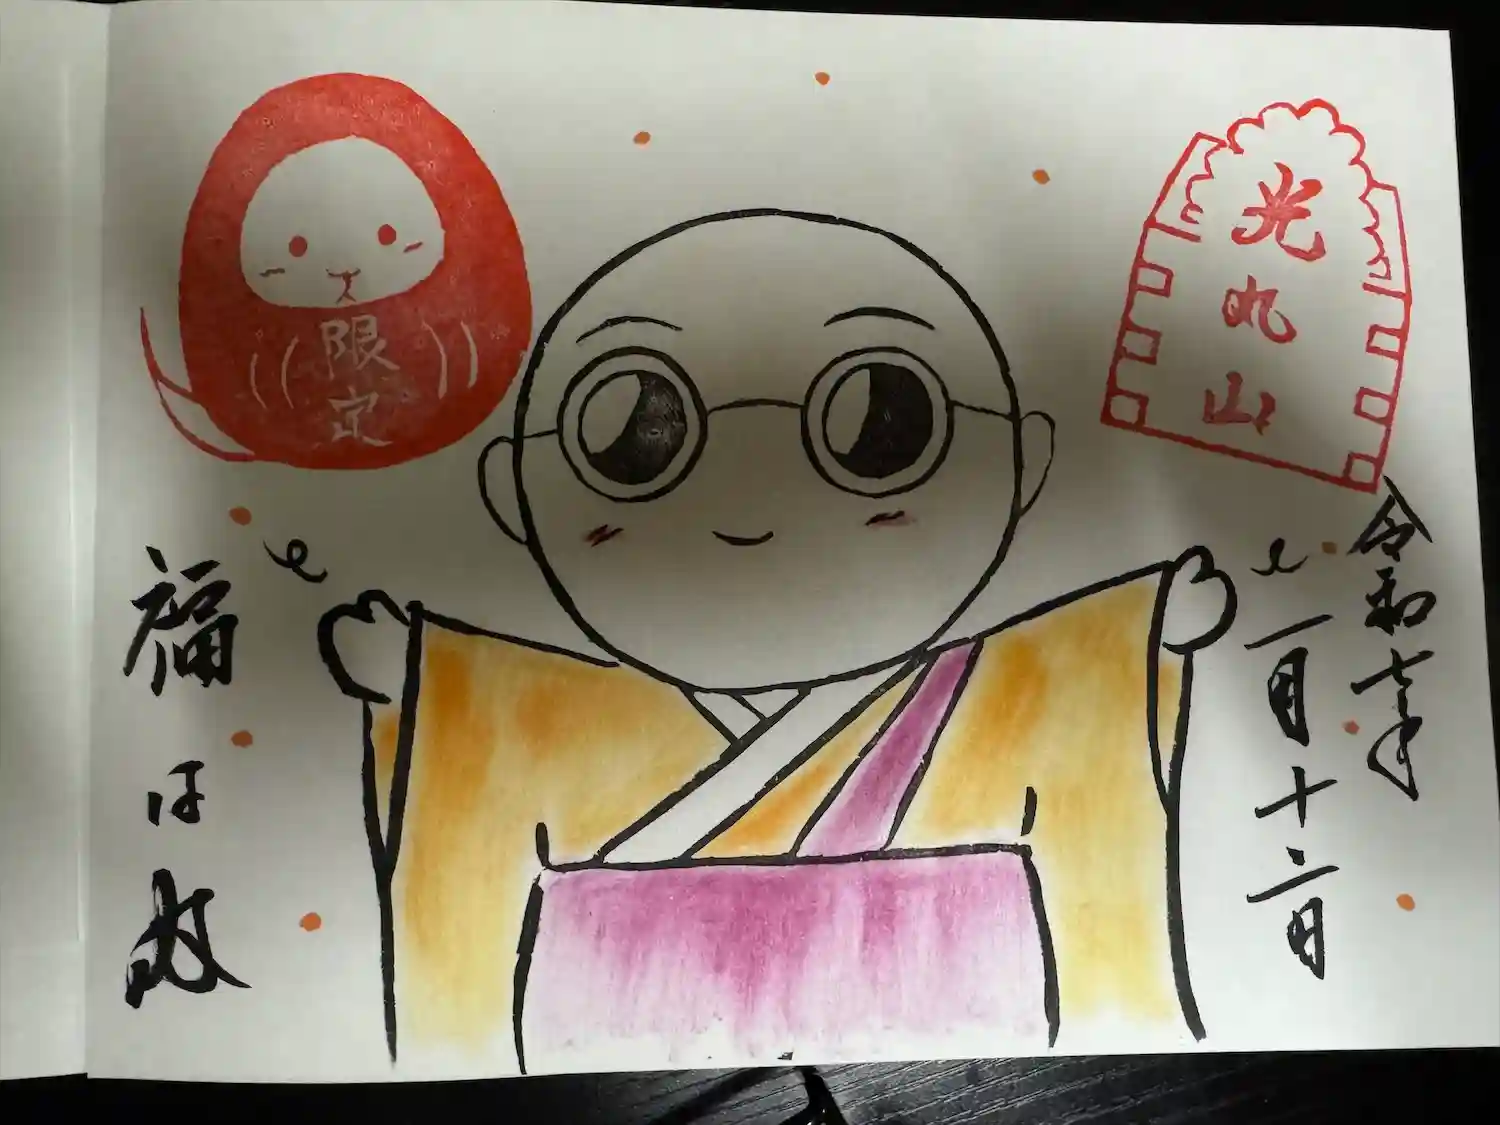 光丸山
令和七年
一月十二日
限定
福は